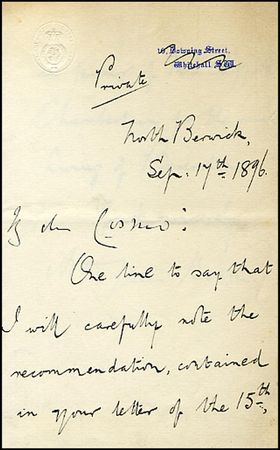 10, Downing Street,
Whitehall S.W.
Private
North Berwick,
Sep. 17th 1896.
My dear Cosmo:
One line to say that
I will carefully note the
recommendation, contained
in your letter of the 15th,